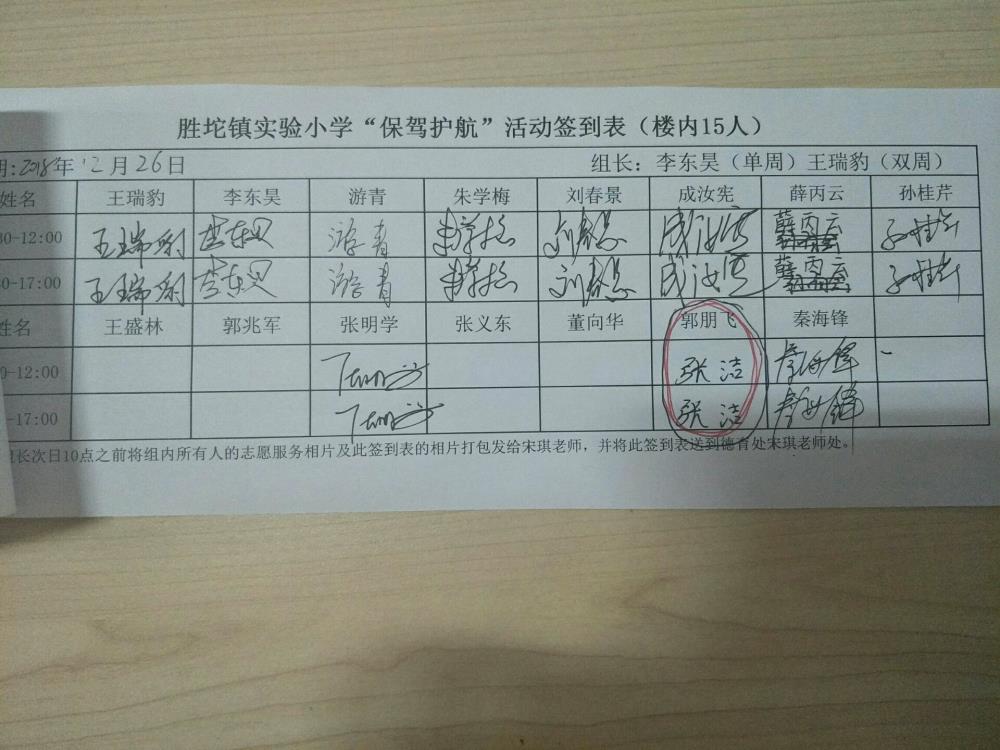 胜坨镇实验小学“保驾护航”活动签到表（楼内15人）
期:2018年12月26日 组长：李东昊（单周）王瑞豹（双周）
姓名 王瑞豹 李东昊 游青 朱学梅 刘春景 成汝宪 薛丙云 孙桂芹
30-12:00 王瑞豹 李东昊 游青 朱学梅 刘春景 成汝宪 薛丙云 孙桂芹
30-17:00 王瑞豹 李东昊 游青 朱学梅 刘春景 成汝宪 薛丙云 孙桂芹
姓名 王盛林 郭兆军 张明学 张义东 董向华 郭朋飞 秦海锋
0-12:00 张洁 秦海锋
-17:00 张洁 秦海锋
组长次日10点之前将组内所有人的志愿服务相片及此签到表的相片打包发给宋琪老师，并将此签到表送到德育处宋琪老师处。